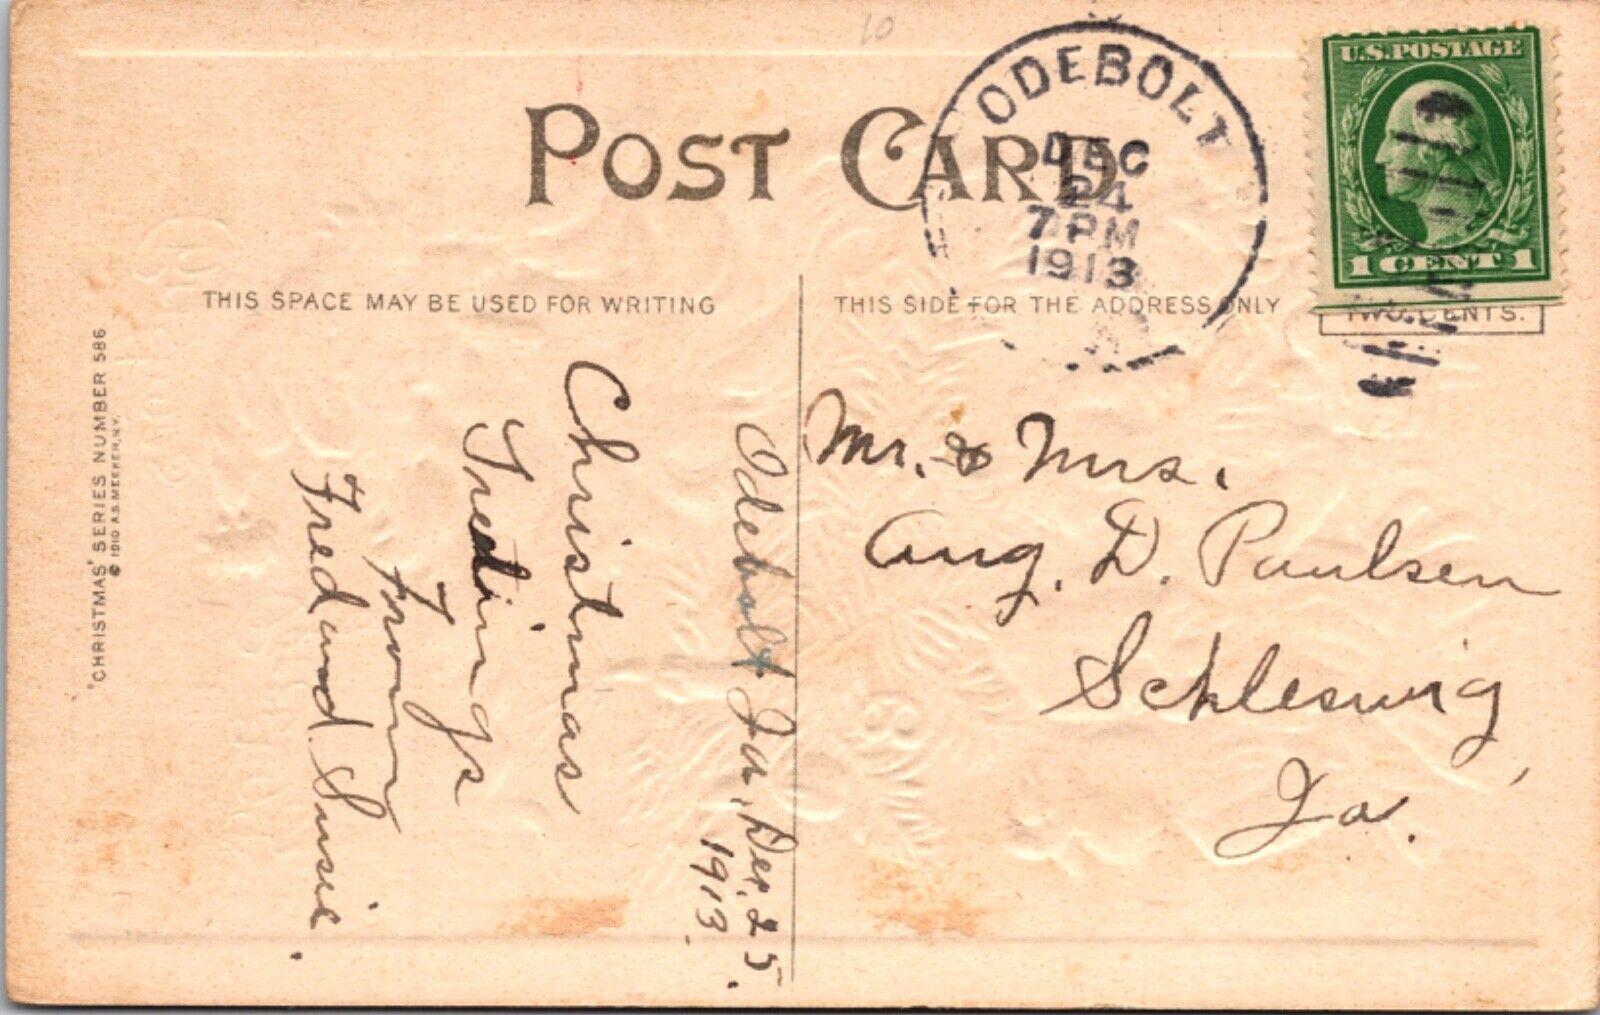 10
POST CARD
ODEBOLT
DEC
24
7 PM
1913
U.S. POSTAGE
1 CENT 1
TWO CENTS.
THIS SPACE MAY BE USED FOR WRITING
THIS SIDE FOR THE ADDRESS ONLY
"CHRISTMAS" SERIES NUMBER 586
© 1910 A.S. MEEKER, N.Y.
Odebolt Ia, Dec, 25,
1913.
Christmas
Tredings
From
Fred and Susie.
Mr. & Mrs.
Aug. D. Paulsen
Schleswig,
Ia.